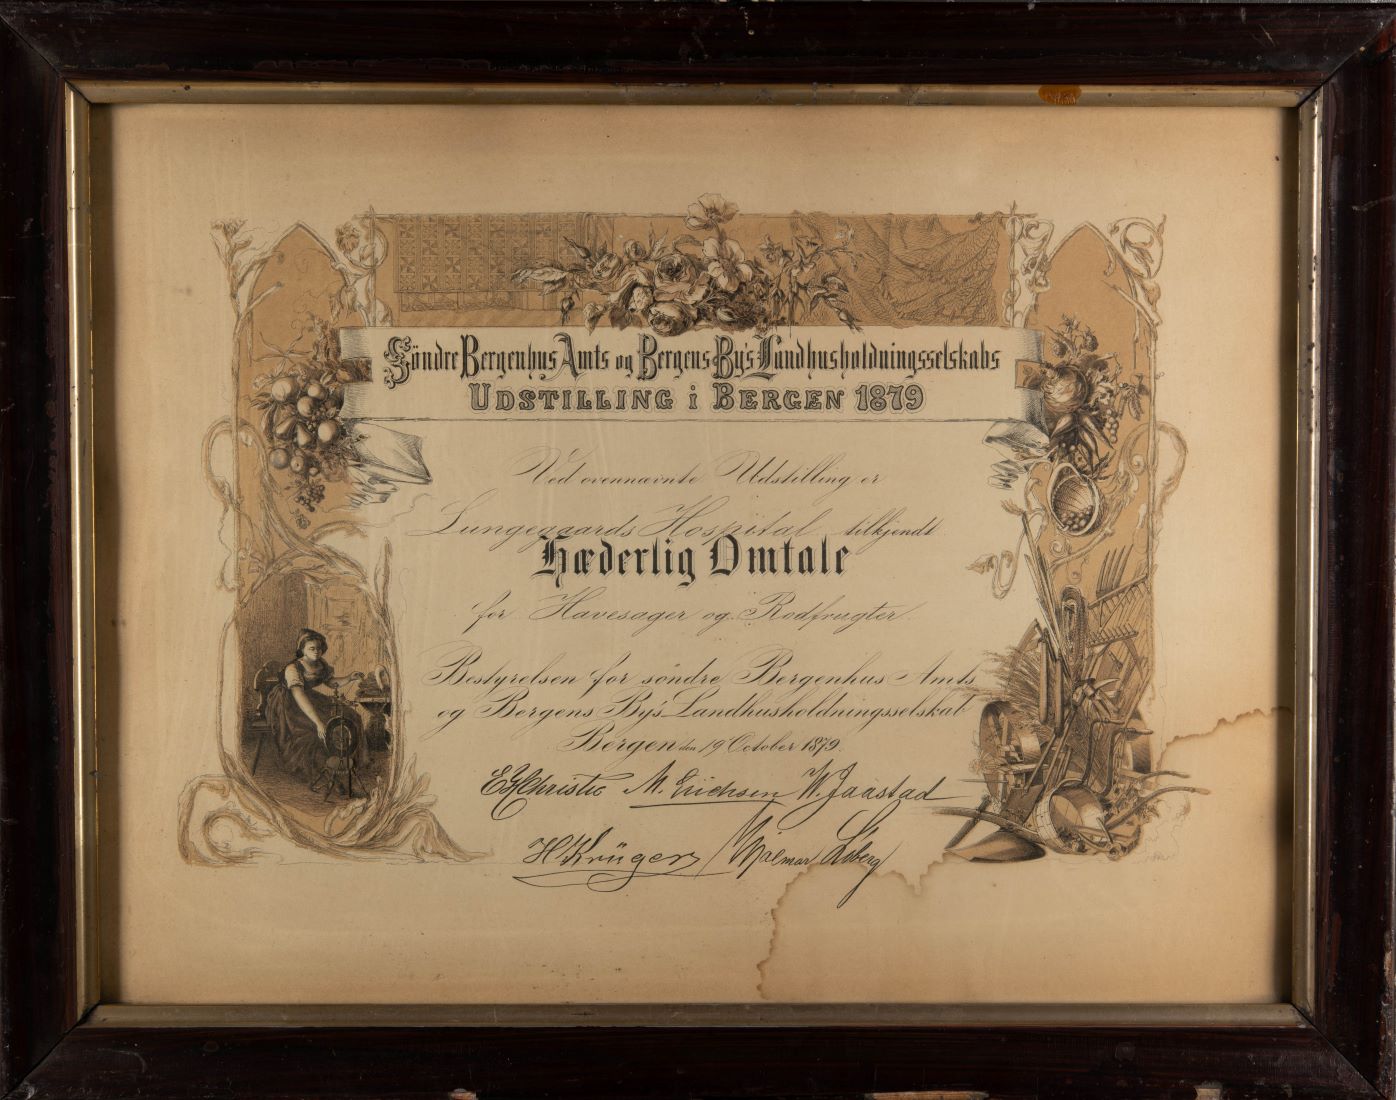 Söndre Bergenhus Amts og Bergens By's Landhusholdningsselskabs
UDSTILLING i BERGEN 1879
Ved ovennævnte Udstilling er
Lungegaards Hospital tilkjendt
Hæderlig Omtale
for Havesager og Rodfrugter.
Bestyrelsen for söndre Bergenhus Amts
og Bergens By's Landhusholdningsselskab
Bergen den 19 October 1879.
Christie M. Erichsen W. Jaastad
H Krüger Hjalmar Löberg